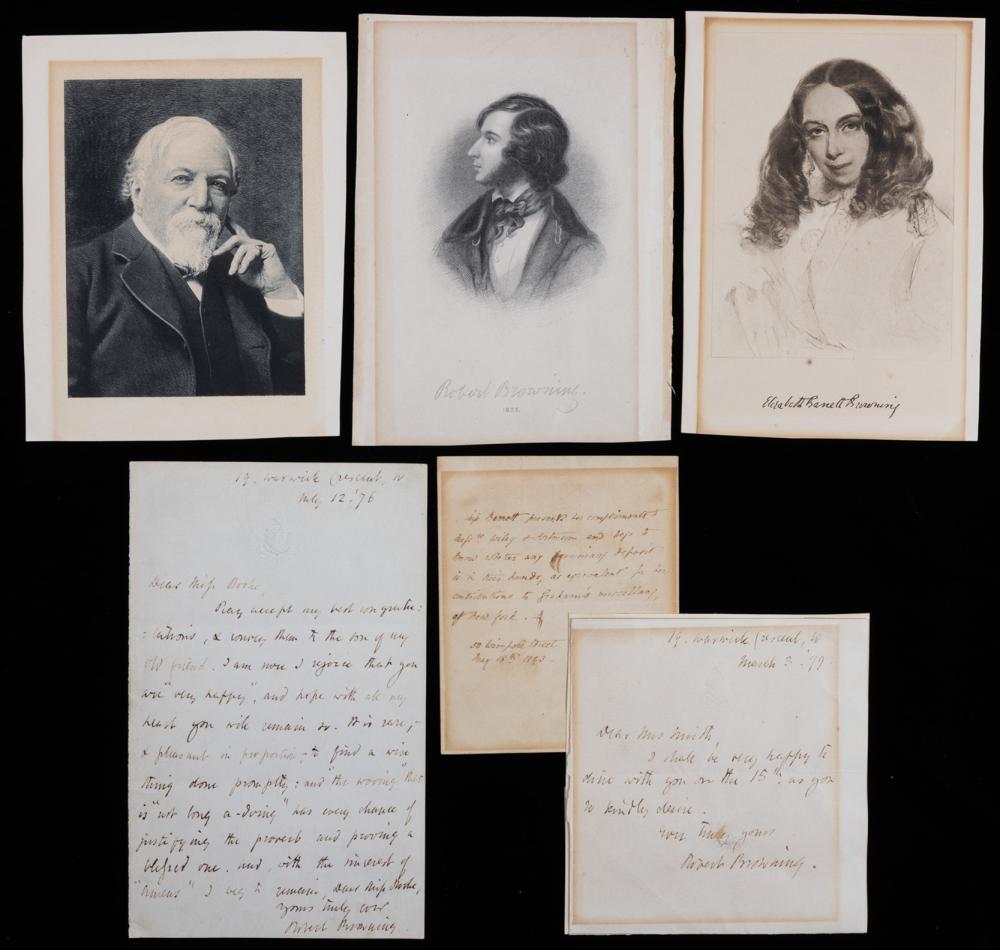 Robert Browning.
1835.
Elizabeth Barrett Browning
19. Warwick Crescent, W
July 12. '76
Dear Miss
Pray accept my best congratu:
:lations, & convey them to the son of my
old friend. I am sure I rejoice that you
are "very happy", and hope with all my
heart you will remain so. It is rare,-
& pleasant in proportion,- to find a wise
thing done promptly: and "the wooing" that
is "not long a-doing" has every chance of
justifying the proverb and proving a
blessed one. And, with the sincerest of
"Amens" I beg to remain, Dear Miss
yours truly ever
Robert Browning.
Miss Barrett presents her compliments to
Mess.rs Wiley & Putnam and begs to
know whether any pecuniary deposit
is in their hands, as equivalent for her
contributions to Graham's miscellany,
of New York.
50 Wimpole Street
1843.
19. Warwick Crescent, W
March 3. '79.
Dear Mrs Smith,
I shall be very happy to
dine with you on the 15th. as you
so kindly desire.
Ever truly yours
Robert Browning.